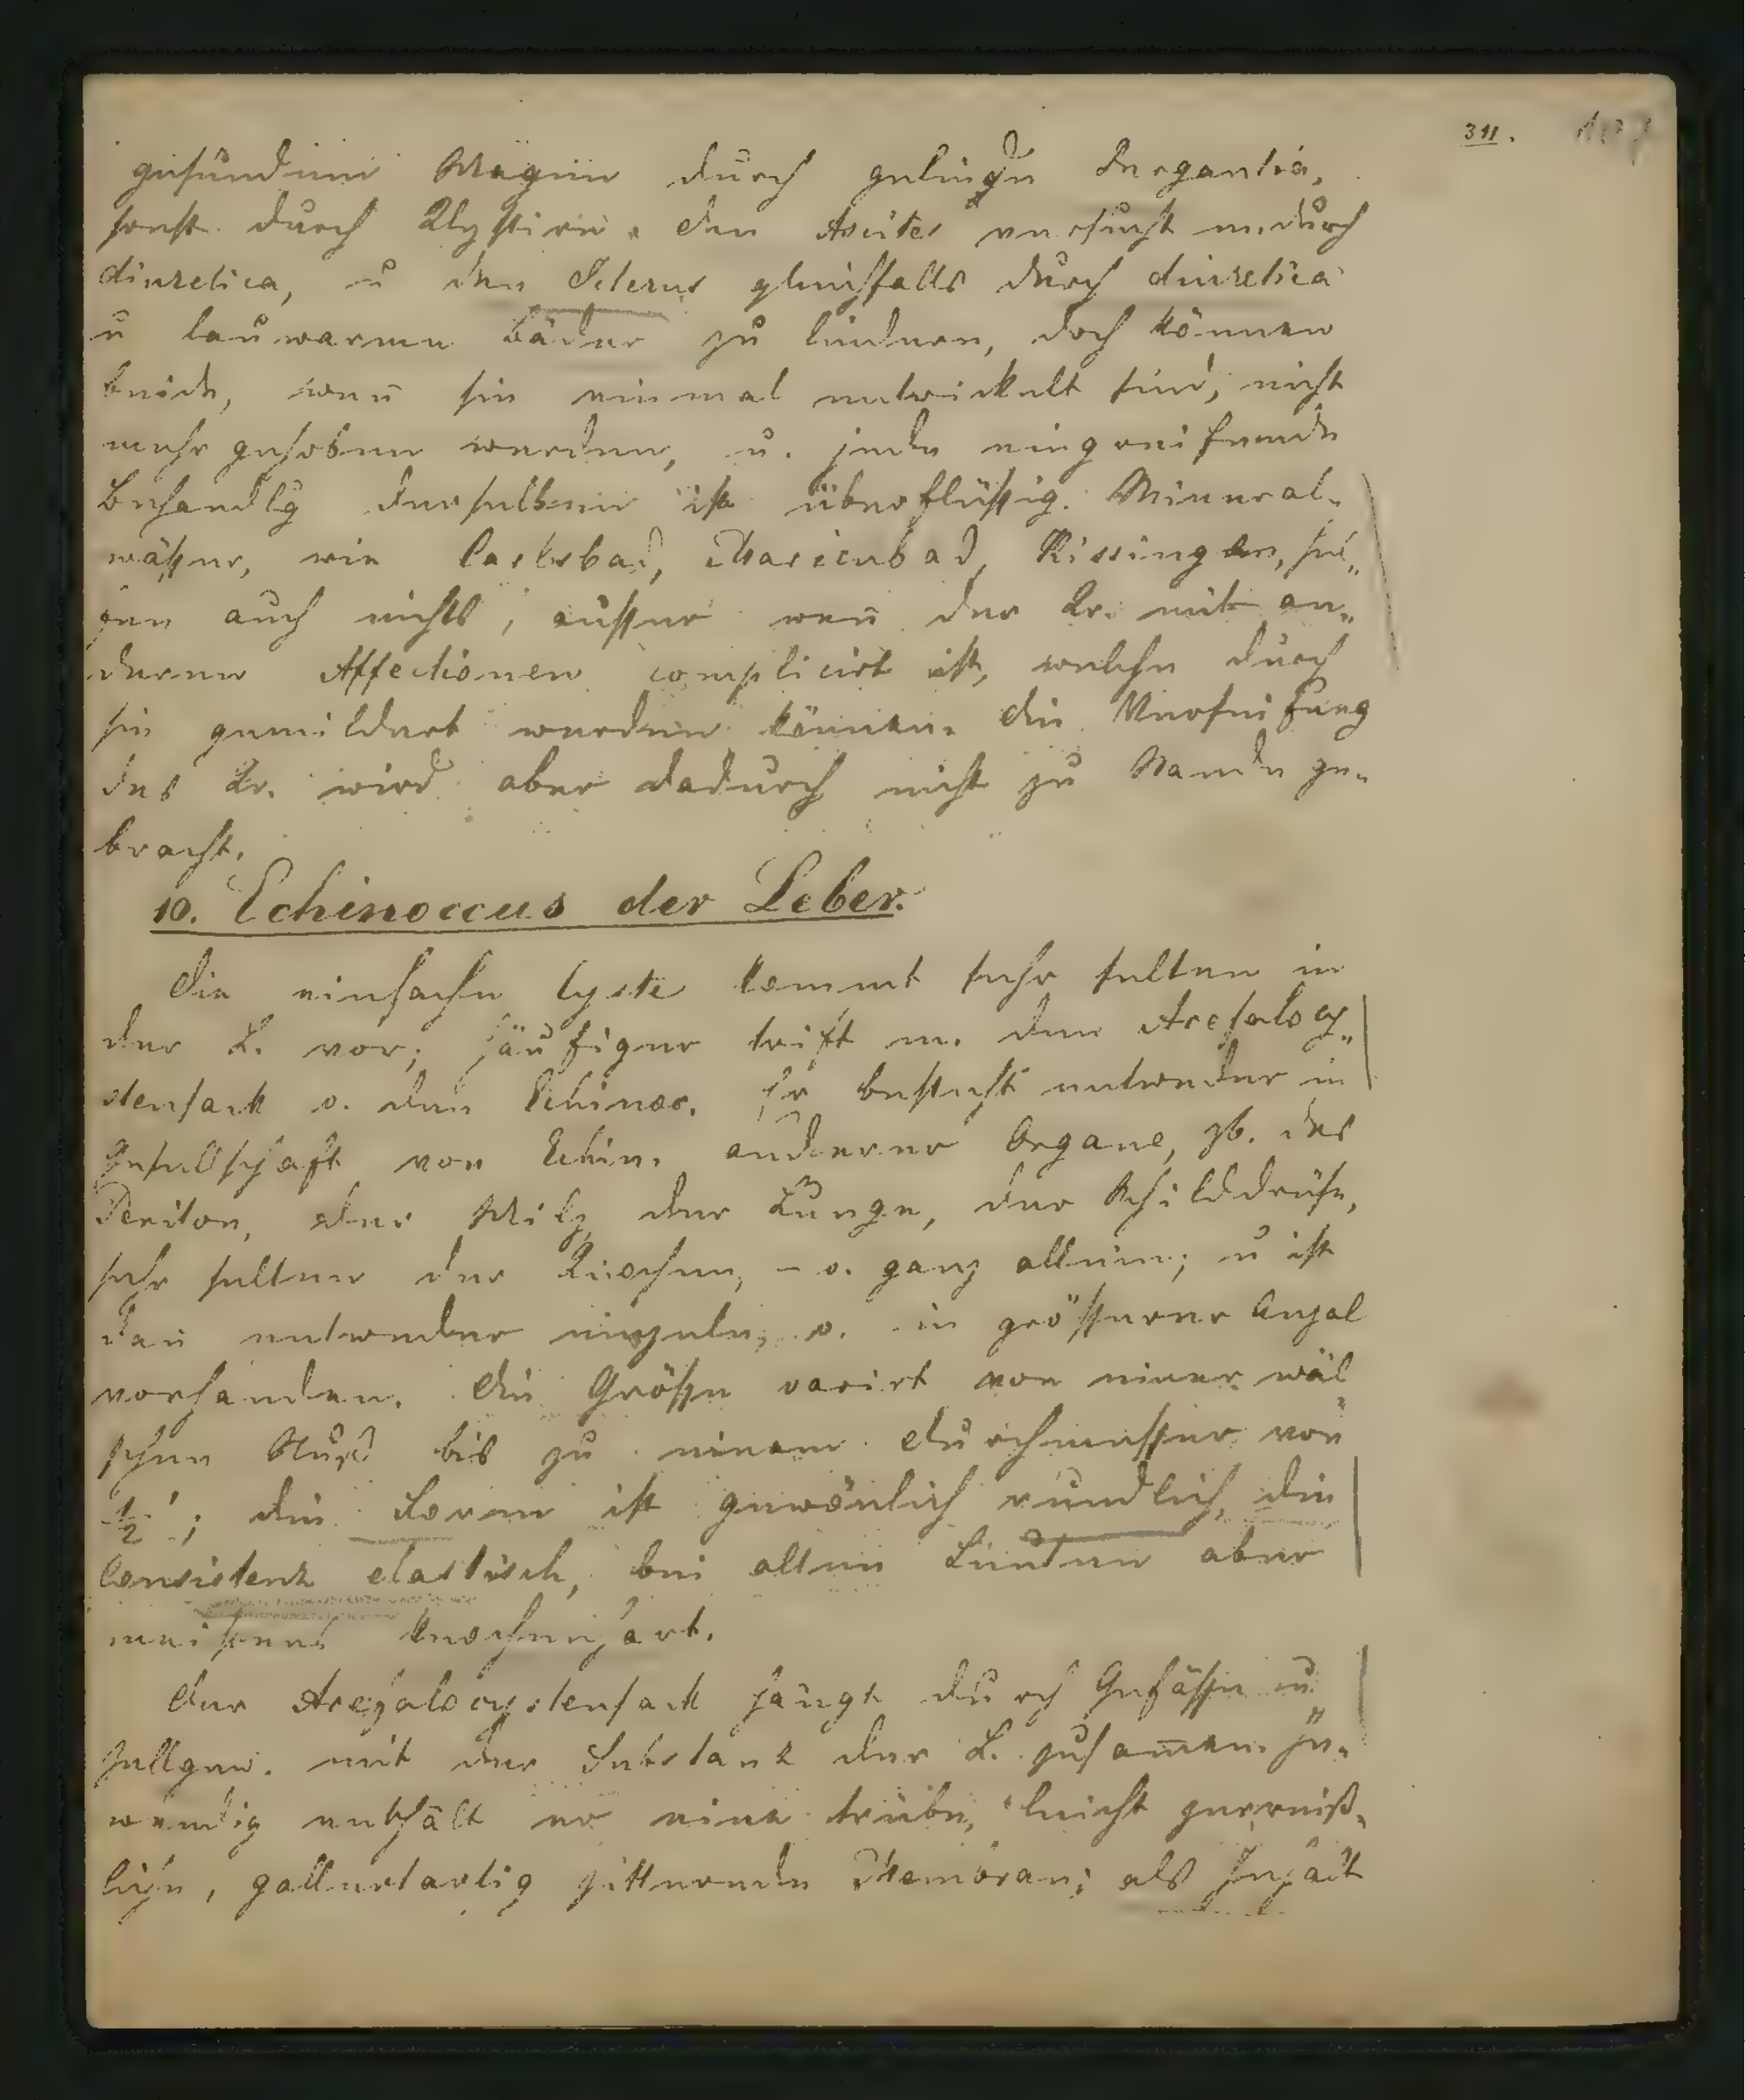 311.
gesundem Magen durch gelinde Purgantia,
sonst durch Klystire. Den Ascites versucht m. durch
diuretica, u den Icterus gleichfalls durch diuretica
u lauwarme Bäder zu lindern, doch können
beide, wen̄ sie einmal entwickelt sind, nicht
mehr gehoben werden, u. jede eingreifende
Behandlg derselben ist überflüssig. Mineral-
wässer, wie Carlsbad, Marienbad, Kissingen, hel„
fen auch nichts, ausser wen̄ der Kr. mit an„
deren Affectionen complicirt ist, welche durch
sie gemildert werden können. Die Verseifung
des Kr. wird aber dadurch nicht zu Stande ge-
bracht.
10. Echinoccus der Leber.
Die einfache Cyste kommt sehr selten in
der L. vor; häufiger trift m. den Acefalocy„
stensack o. den Echinoc. Er besteht entweder in
Gesellschaft von Echin. anderer Organe, zb. des
Periton, der Milz, der Lunge, der Schilddrüse,
sehr selten der Knochen, – o. ganz allein; u ist
dan̄ entweder einzeln, o. in grösserer Anzal
vorhanden. Die Grösse varirt von einer wäl„
schen Nuß bis zu einem Durchmesser von
½'; die Form ist gewönlich rundlich, die
Consistenz elastisch, bei alten Leuten aber
meistens knochenhart.
Der Acefalocystensack hängt durch Gefässe u„
Zellgew. mit der Substanz der L. zusam̄en. In-
wendig enthält er eine trübe, leicht zerreiß-
liche, gallertartig zitternde Membran; als Inhalt